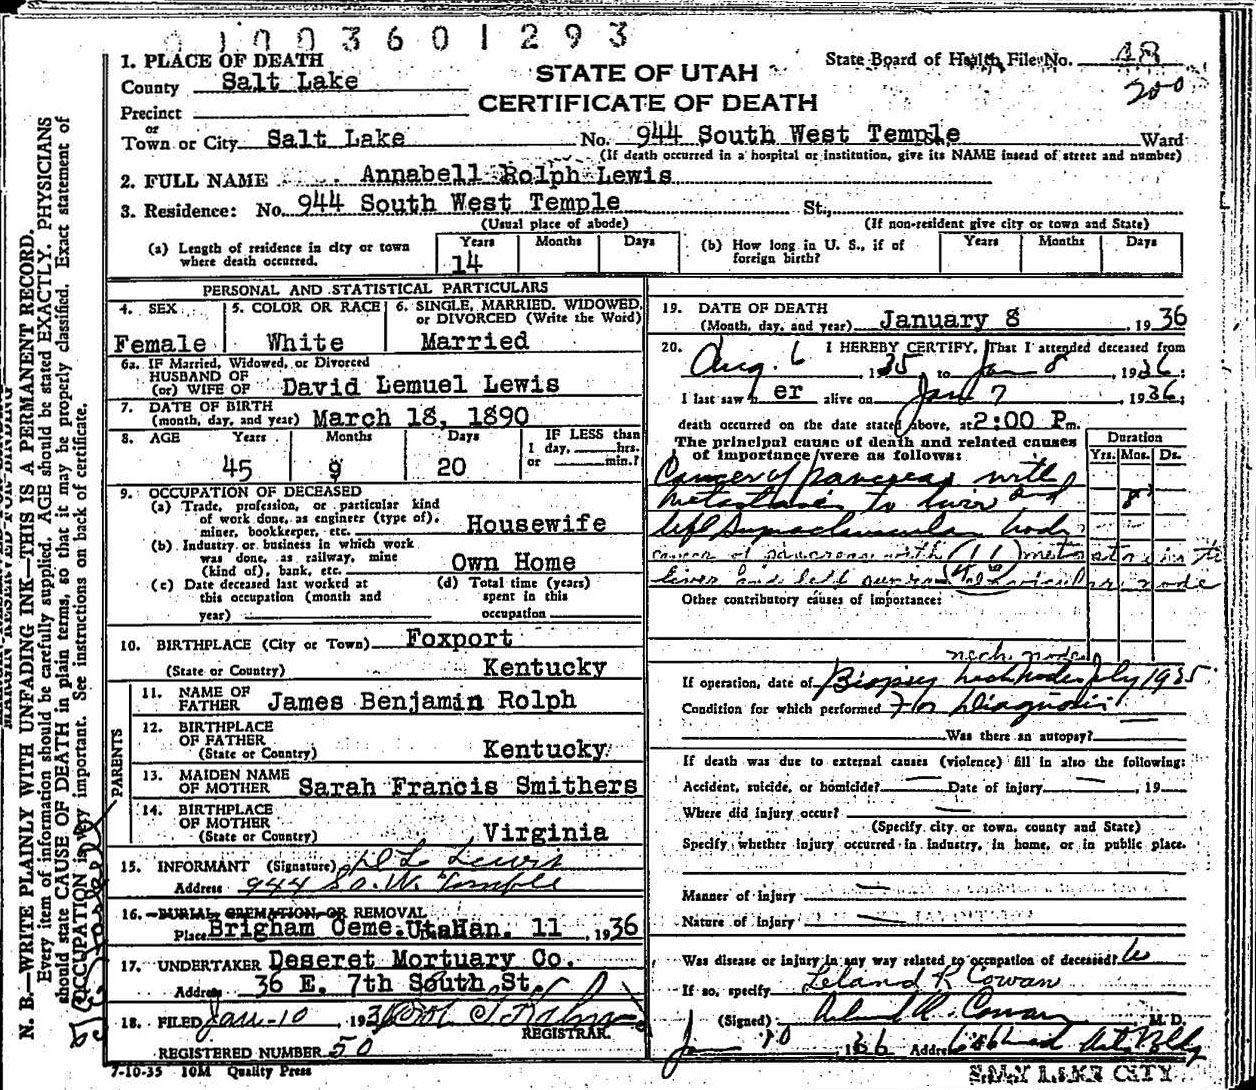 01003601293
1. PLACE OF DEATH
STATE OF UTAH
State Board of Health File No. 48
County Salt Lake
200
CERTIFICATE OF DEATH
Precinct
or
Town or City Salt Lake No. 944 South West Temple Ward
(If death occurred in a hospital or institution, give its NAME insead of street and number)
2. FULL NAME Annabell Rolph Lewis
3. Residence: No. 944 South West Temple St.,
(Usual place of abode) (If non-resident give city or town and State)
(a) Length of residence in city or town where death occurred. Years 14 Months Days
(b) How long in U. S., if of foreign birth? Years Months Days
PERSONAL AND STATISTICAL PARTICULARS
4. SEX Female
5. COLOR OR RACE White
6. SINGLE, MARRIED, WIDOWED, or DIVORCED (Write the Word) Married
6a. IF Married, Widowed, or Divorced
HUSBAND OF
(or) WIFE OF David Lemuel Lewis
7. DATE OF BIRTH
(month, day, and year) March 18, 1890
8. AGE Years 45 Months 9 Days 20
IF LESS than
1 day, hrs.
or min.?
9. OCCUPATION OF DECEASED
(a) Trade, profession, or particular kind
of work done, as engineer (type of),
miner, bookkeeper, etc. Housewife
(b) Industry or business in which work
was done, as railway, mine
(kind of), bank, etc. Own Home
(c) Date deceased last worked at
this occupation (month and
year)
(d) Total time (years)
spent in this
occupation
10. BIRTHPLACE (City or Town) Foxport
(State or Country) Kentucky
PARENTS
11. NAME OF
FATHER James Benjamin Rolph
12. BIRTHPLACE
OF FATHER
(State or Country) Kentucky
13. MAIDEN NAME
OF MOTHER Sarah Francis Smithers
14. BIRTHPLACE
OF MOTHER
(State or Country) Virginia
15. INFORMANT (Signature) D L Lewis
Address 944 So. W. Temple
16. BURIAL, CREMATION, OR REMOVAL
Place Brigham Ceme. Utah Jan. 11, 1936
17. UNDERTAKER Deseret Mortuary Co.
Address 36 E. 7th South St.
18. FILED Jan-10, 1936
REGISTRAR
REGISTERED NUMBER 50
7-10-35 10M Quality Press
19. DATE OF DEATH
(Month, day, and year) January 8, 1936
20. I HEREBY CERTIFY, That I attended deceased from
Aug. 6, 1935, to Jan 8, 1936;
I last saw her alive on Jan 7, 1936;
death occurred on the date stated above, at 2:00 P.m.
The principal cause of death and related causes
of importance were as follows:
Duration
Yrs. Mos. Ds.
Cancer of pancreas with
metastasis to liver and 8
left Supraclavicular node
cancer of pancreas with metastasis to
liver and left supraclavicular node
Other contributory causes of importance:
neck nodes
If operation, date of Biopsy neck nodes July 1935
Condition for which performed For Diagnosis
Was there an autopsy?
If death was due to external causes (violence) fill in also the following:
Accident, suicide, or homicide? Date of injury, 19
Where did injury occur?
(Specify city or town, county and State)
Specify whether injury occurred in industry, in home, or in public place.
Manner of injury
Nature of injury
Was disease or injury in any way related to occupation of deceased?
If so, specify Leland R Cowan
(Signed) Leland R. Cowan M. D.
Jan 10, 1936 Address
SALT LAKE CITY
N. B.—WRITE PLAINLY WITH UNFADING INK—THIS IS A PERMANENT RECORD.
Every item of information should be carefully supplied. AGE should be stated EXACTLY. PHYSICIANS
should state CAUSE OF DEATH in plain terms, so that it may be properly classified. Exact statement of
OCCUPATION is very important. See instructions on back of certificate.
MARGIN RESERVED FOR BINDING